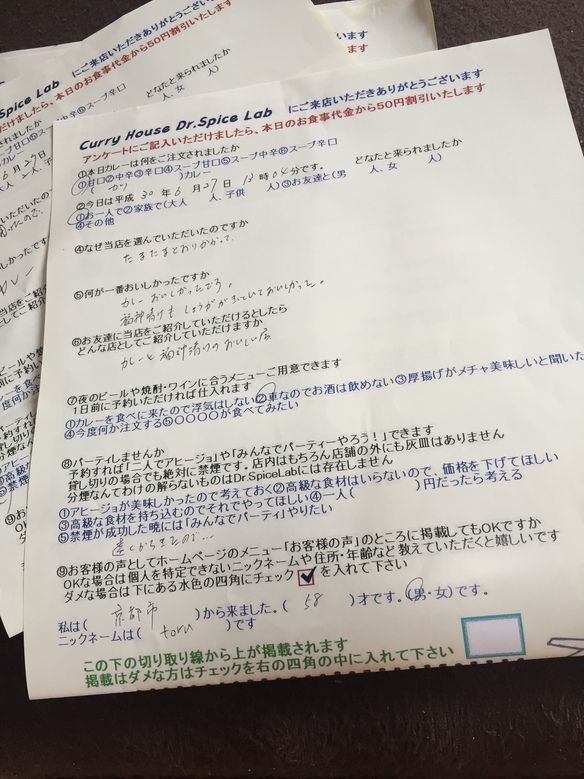 Curry House Dr.Spice Lab にご来店いただきありがとうございます
アンケートにご記入いただけましたら、本日のお食事代金から50円割引いたします
①本日カレーは何をご注文されましたか
①甘口②中辛③辛口④スープ甘口⑤スープ中辛⑥スープ辛口
( )カレー
②今日は平成 30 年 6 月 27 日 13 時 04 分です。 どなたと来られましたか
①お一人で②家族で(大人 人、子供 人)③お友達と(男 人、女 人)
④その他
④なぜ当店を選んでいただいたのですか
たまたまとおりかかって
⑤何が一番おいしかったですか
カレーおいしかったです。
福神漬けもしょうががきいていておいしかった。
⑥お友達に当店をご紹介していただけるとしたら
どんな店としてご紹介していただけますか
カレーと福神漬けのおいしい店
⑦夜のビールや焼酎・ワインに合うメニューご用意できます
1日前に予約いただければ仕入れます
①カレーを食べに来たので浮気はしない②車なのでお酒は飲めない③厚揚げがメチャ美味しいと聞いた
④今度何か注文する⑤OOOOが食べてみたい
⑧パーティしませんか
予約すれば「二人でアヒージョ」や「みんなでパーティーやろう!」できます
貸し切りの場合でも絶対に禁煙です。店内はもちろん店舗の外にも灰皿はありません
分煙なんてわけの解らないものはDr.SpiceLabには存在しません
①アヒージョが美味しかったので考えておく②高級な食材はいらないので、価格を下げてほしい
③高級な食材を持ち込むのでそれでやってほしい④一人( )円だったら考える
⑤禁煙が成功した暁には「みんなでパーティ」やりたい
遠くからきたので…
⑨お客様の声としてホームページのメニュー「お客様の声」のところに掲載してもOKですか
OKな場合は個人を特定できないニックネームや住所・年齢など教えていただくと嬉しいです
ダメな場合は下にある水色の四角にチェック ✓ を入れて下さい
私は( 京都市 )から来ました。( 58 )才です。(男・女)です。
ニックネームは( toru )です
この下の切り取り線から上が掲載されます
掲載はダメな方はチェックを右の四角の中に入れて下さい